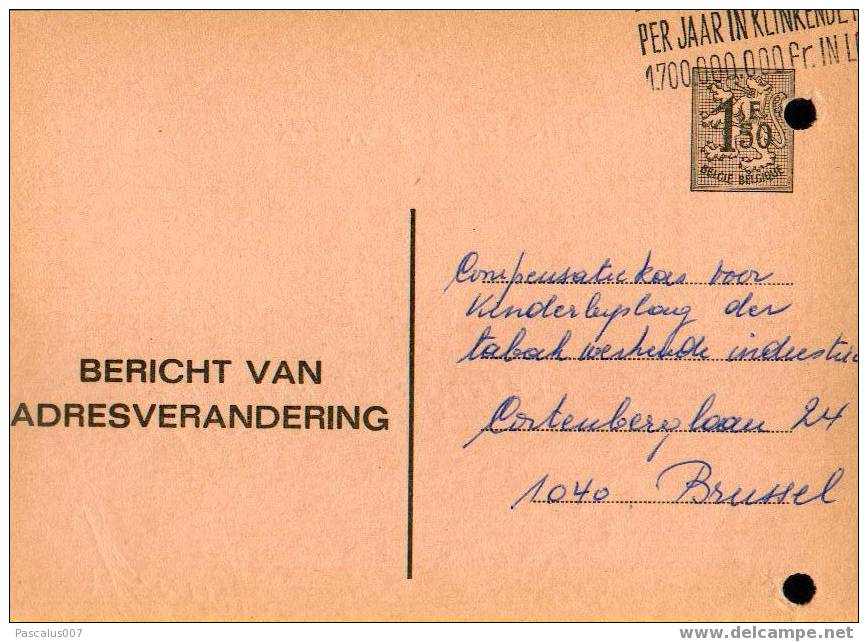 PER JAAR IN KLINKENDE
1.700.000.000 Fr. IN
1F
50
BELGIE-BELGIQUE
Compensatiekas voor
Kinderbijslag der
tabak werkende industrie
BERICHT VAN
ADRESVERANDERING
Cortenberglaan 24
1040 Brussel
Pascalus007
delcampe.net